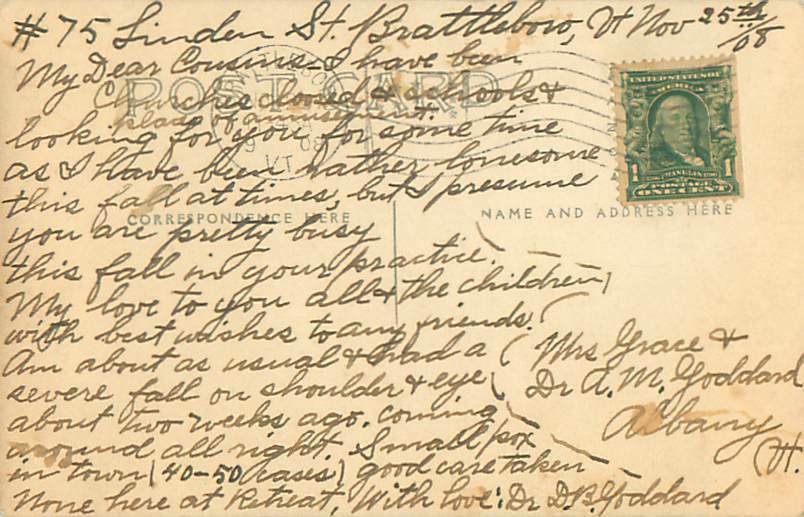 # 75 Linden St. Brattleboro, Vt Nov 25th /08
My Dear Cousins - I have been
Churches closed & schools &
place of amusement.
looking for you for some time
as I have been rather lonesome
this fall at times, but I presume
you are pretty busy
this fall in your practice.
My love to you all & the children
with best wishes to any friends.
Am about as usual & had a
severe fall on shoulder & eye
about two weeks ago. coming
around all right. Small pox
in town (40-50 cases) good care taken
None here at Retreat, With love: Dr D.B. Goddard
POST CARD
CORRESPONDENCE HERE
NAME AND ADDRESS HERE
Mrs Grace &
Dr A. M. Goddard
Albany
Vt.
UNITED STATES OF
AMERICA
1 FRANKLIN 1
POSTAGE
ONE CENT
08
VT